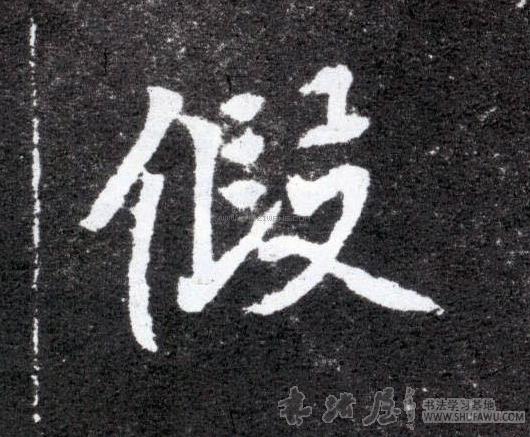 假
书法学习基地
WWW.SHUFAWU.COM